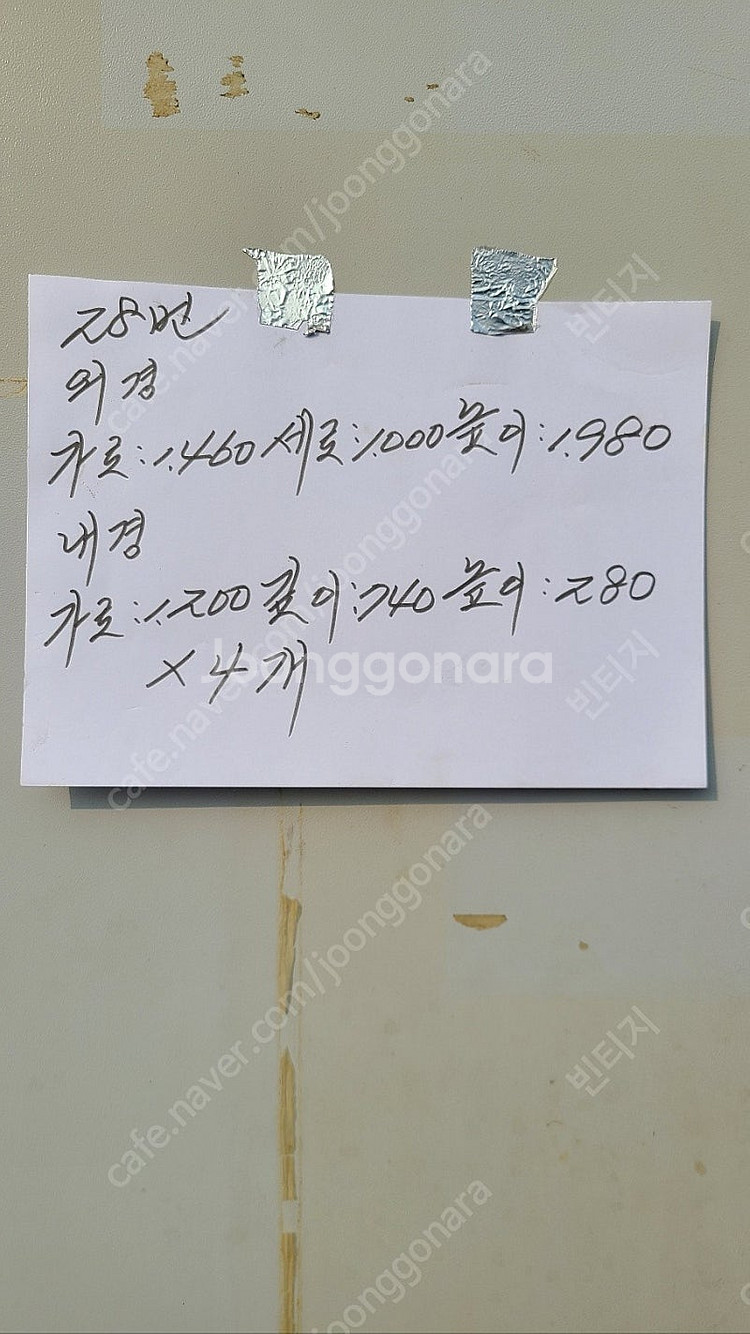 28번
외경
가로:1.460 세로:1.000 높이:1.980
내경
가로:1.200 깊이:740 높이:280
×4개
Joonggonara
cafe.naver.com/joonggonara
빈티지
cafe.naver.com/joonggonara
빈티지
cafe.naver.com/joonggonara
빈티지
joonggonara